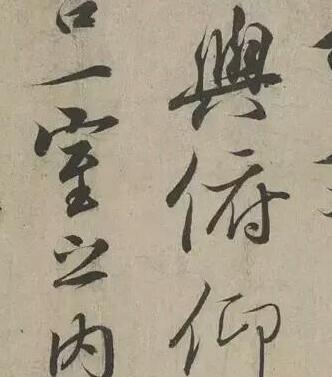 與俯仰
一室之内